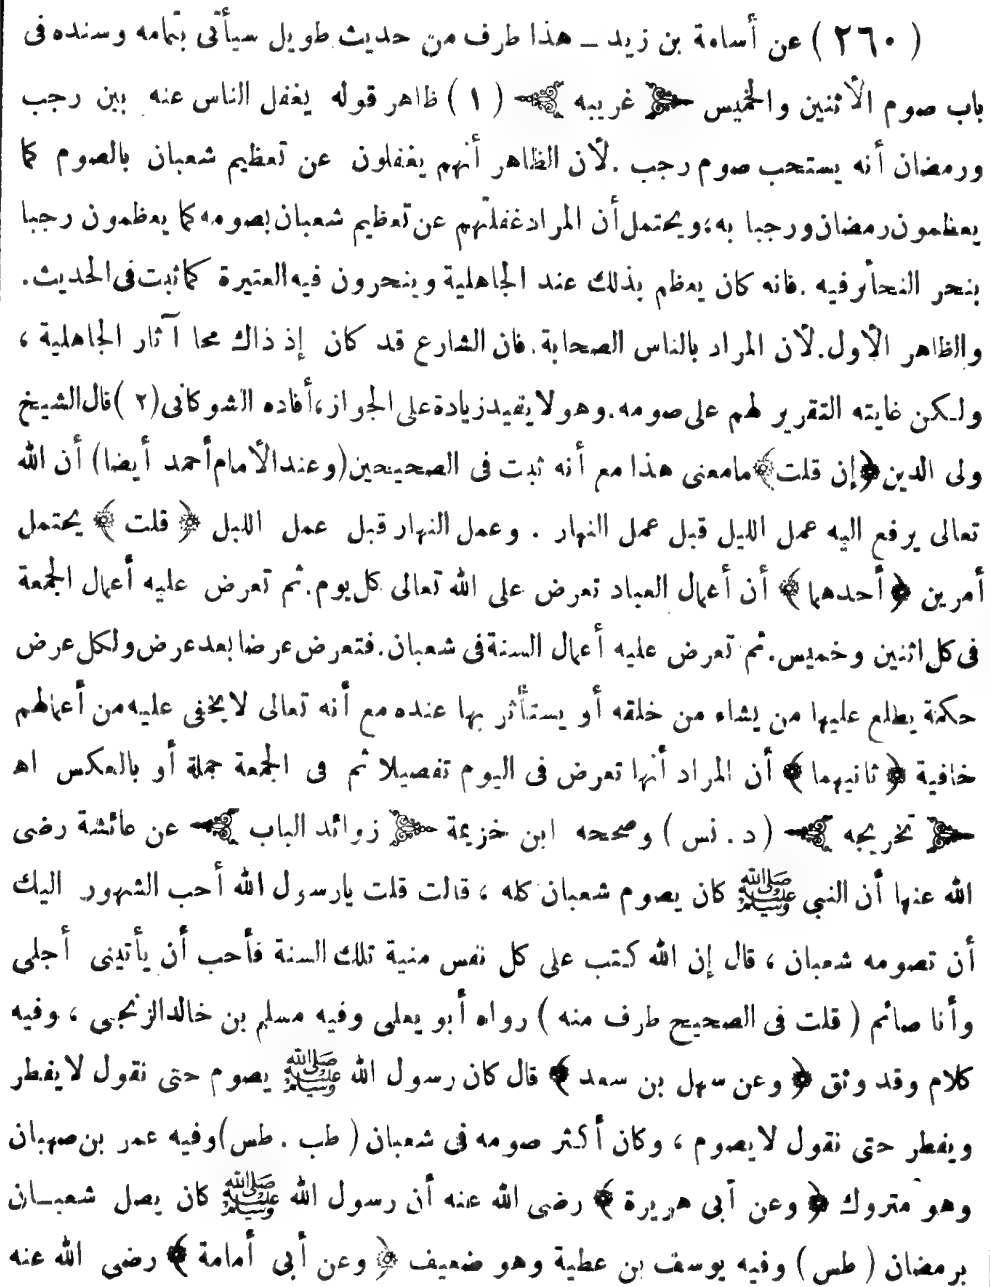 ( ٢٦٠ ) عن أسامة بن زيد ــ هذا طرف من حديث طويل سيأتى بتمامه وسنده فى
باب صوم الأثنين والخميس غريبه ( ١ ) ظاهر قوله يغفل الناس عنه بين رجب
ورمضان أنه يستحب صوم رجب . لأن الظاهر أنهم يغفلون عن تعظيم شعبان بالصوم كما
يعظمون رمضان ورجبا به ، ويحتمل أن المراد غفلتهم عن تعظيم شعبان بصومه كما يعظمون رجبا
بنحر النحائر فيه . فانه كان يعظم بذلك عند الجاهلية وينحرون فيه العتيرة كما ثبت فى الحديث .
والظاهر الأول . لأن المراد بالناس الصحابة . فان الشارع قد كان إذ ذاك محا آثار الجاهلية ،
ولكن غايته التقرير لهم على صومه . وهو لا يفيد زيادة على الجواز ، أفاده الشوكانى ( ٢ ) قال الشيخ
ولى الدين ﴿ إن قلت ﴾ ما معنى هذا مع أنه ثبت فى الصحيحين ( وعند الأمام أحمد أيضا ) أن الله
تعالى يرفع اليه عمل الليل قبل عمل النهار . وعمل النهار قبل عمل الليل ﴿ قلت ﴾ يحتمل
أمرين ﴿ أحدهما ﴾ أن أعمال العباد تعرض على الله تعالى كل يوم . ثم تعرض عليه أعمال الجمعة
فى كل اثنين وخميس . ثم تعرض عليه أعمال السنة فى شعبان . فتعرض عرضا بعد عرض ولكل عرض
حكمة يطلع عليها من يشاء من خلقه أو يستأثر بها عنده مع أنه تعالى لا يخفى عليه من أعمالهم
خافية ﴿ ثانيهما ﴾ أن المراد أنها تعرض فى اليوم تفصيلا ثم فى الجمعة جملة أو بالعكس اه
تخريجه ( د . نس ) وصححه ابن خزيمة زوائد الباب عن عائشة رضى
الله عنها أن النبى ﷺ كان يصوم شعبان كله ، قالت قلت يارسول الله أحب الشهور اليك
أن تصومه شعبان ، قال إن الله كتب على كل نفس منية تلك السنة فأحب أن يأتينى أجلى
وأنا صائم ( قلت فى الصحيح طرف منه ) رواه أبو يعلى وفيه مسلم بن خالد الزنجى ، وفيه
كلام وقد وثق ﴿ وعن سهل بن سعد ﴾ قال كان رسول الله ﷺ يصوم حتى نقول لا يفطر
ويفطر حتى نقول لا يصوم ، وكان أكثر صومه فى شعبان ( طب . طس ) وفيه عمر بن صهبان
وهو متروك ﴿ وعن أبى هريرة ﴾ رضى الله عنه أن رسول الله ﷺ كان يصل شعبــان
برمضان ( طس ) وفيه يوسف بن عطية وهو ضعيف ﴿ وعن أبى أمامة ﴾ رضى الله عنه